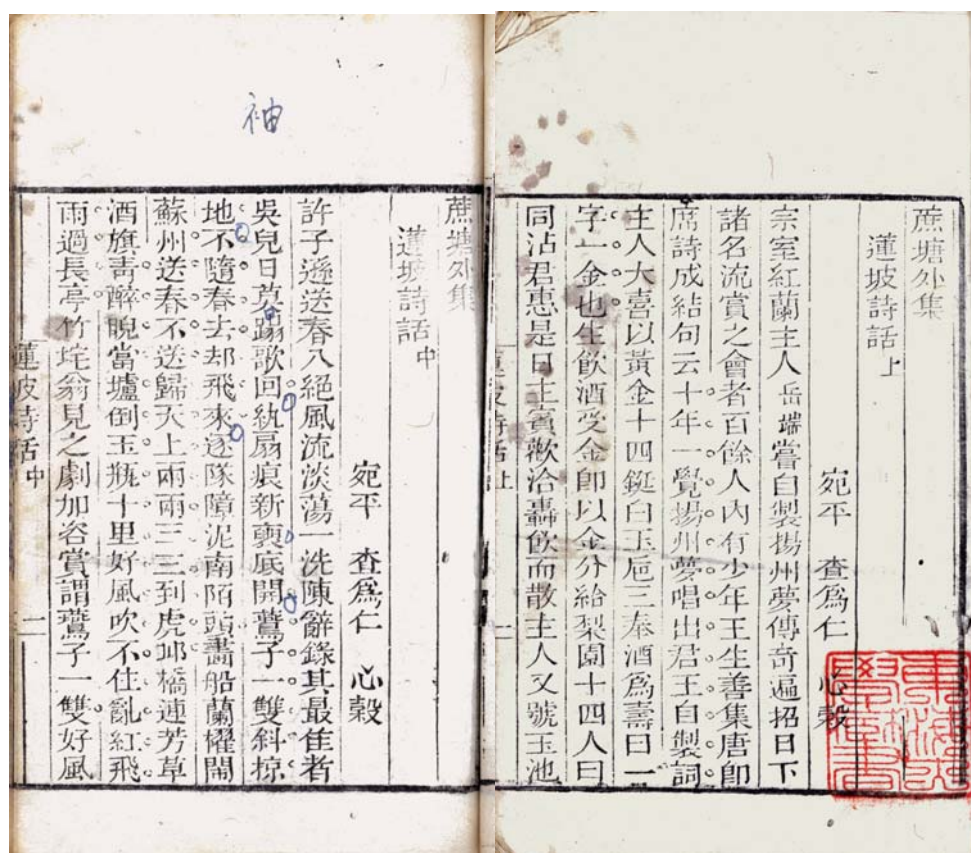 蔗塘外集
蓮坡詩話上
宛平 查為仁 心穀
宗室紅蘭主人岳端嘗自製揚州夢傳奇遍招日下
諸名流賞之會者百餘人內有少年王生善集唐卽
席詩成結句云十年一覺揚州夢唱出君王自製詞
主人大喜以黃金十四鋌白玉巵三奉酒爲壽曰一
字一金也生飲酒受金卽以金分給梨園十四人曰
同沾君惠是日主賓歡洽轟飲而散主人又號玉池
蓮坡詩話上
袖
蔗塘外集
蓮坡詩話中
宛平 查爲仁 心穀
許子遜送春八絕風流淡蕩一洗陳辭錄其最佳者
吳兒日莫蹋歌回紈扇痕新褏底開鷰子一雙斜掠
地不隨春去却飛來逐隊障泥南陌頭畵船蘭櫂閙
蘇州送春不送歸天上兩兩三三到虎邱橋連芳草
酒旗靑醉睨當壚倒玉瓶十里好風吹不住亂紅飛
雨過長亭竹垞翁見之劇加咨賞謂鷰子一雙好風
蓮坡詩話中
一